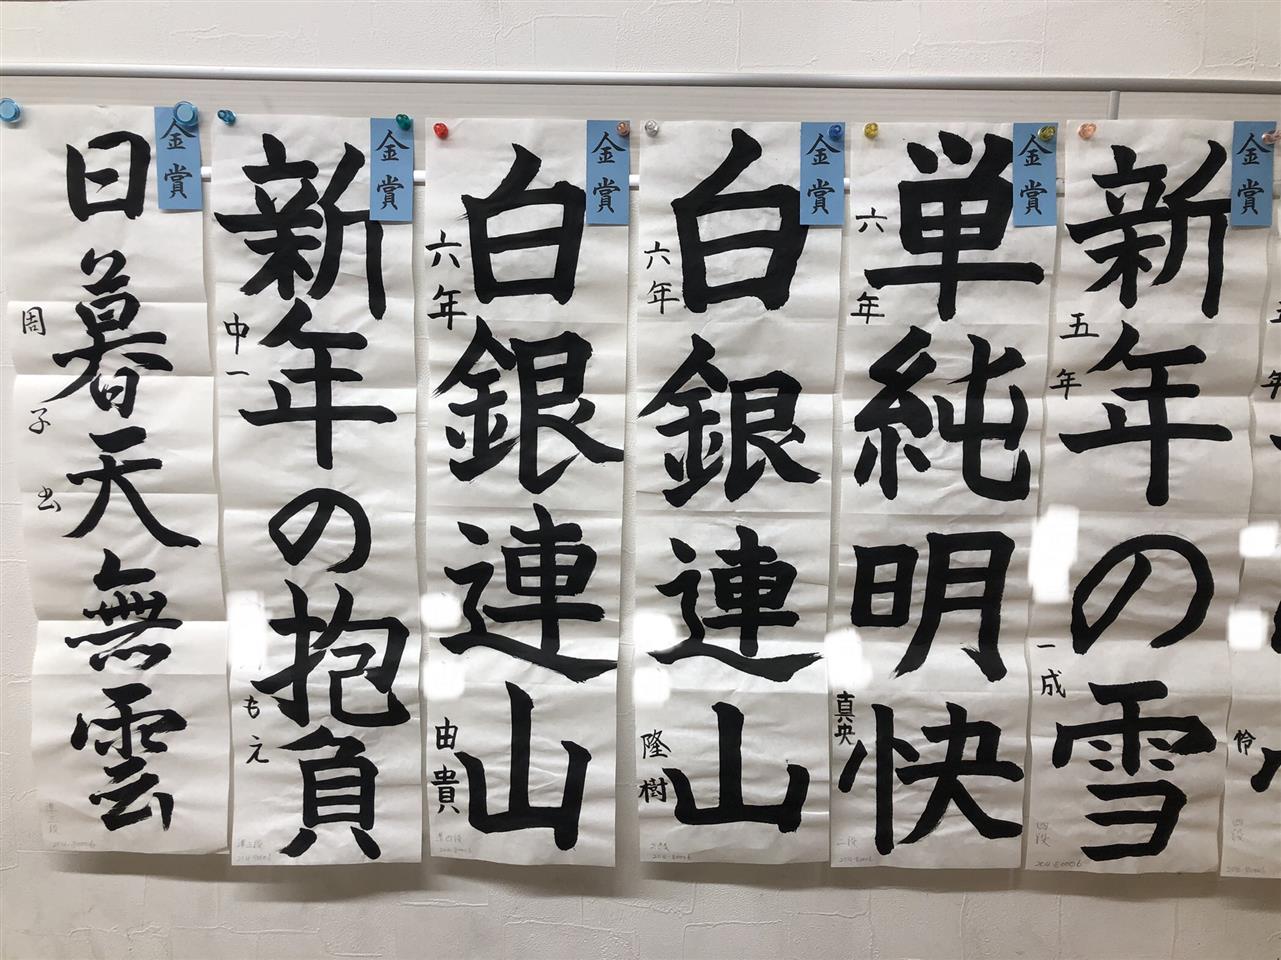 金賞
新年の雪
五年
一成
四段
2014-80006
金賞
単純明快
六年
真央
二段
金賞
白銀連山
六年
隆樹
金賞
白銀連山
六年
由貴
準四段
金賞
新年の抱負
中一
もえ
準三段
金賞
日暮天無雲
周子書
準三段
伶
四段